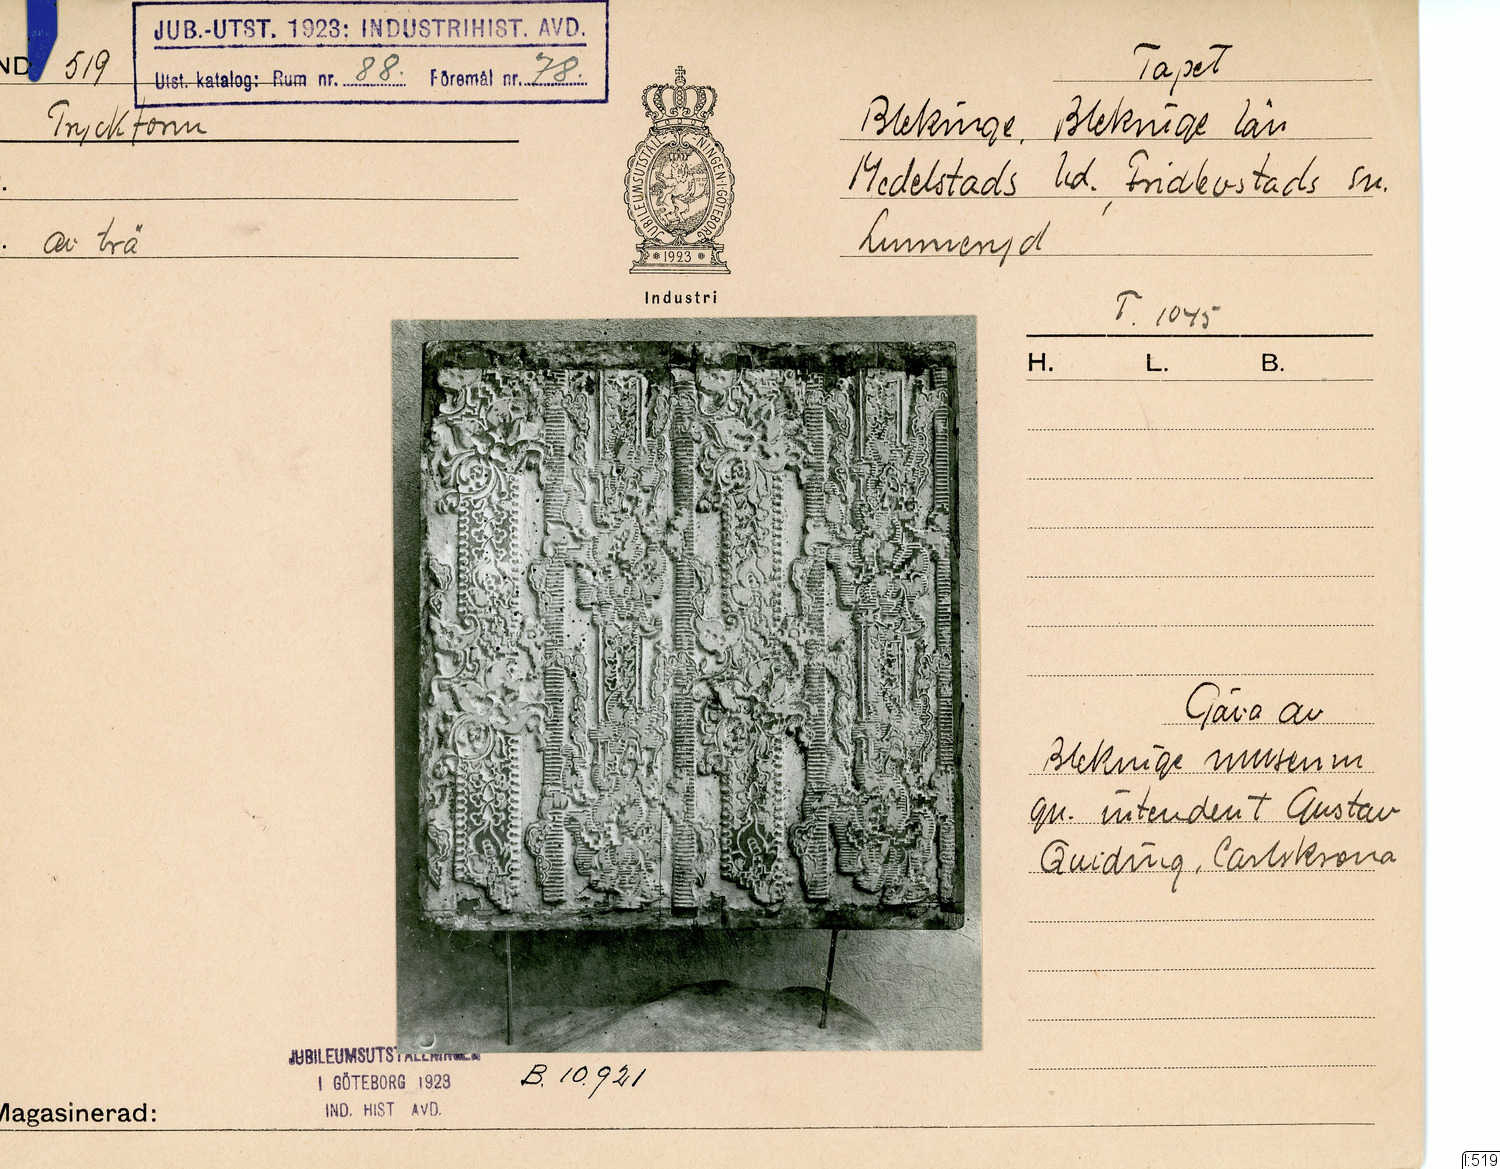 JUB.-UTST. 1923: INDUSTRIHIST. AVD.
Utst. katalog: Rum nr. 88. Föremål nr. 78.
ND 519
Tryckform
av trä
JUBILEUMSUTSTÄLLNINGEN I GÖTEBORG
1923
Industri
Tapet
Blekinge, Blekinge län
Medelstads hd. Fridlevstads sn.
T. 1045
H. L. B.
Gåva av
Blekinge museum
gn. intendent Gustav
Quiding, Carlskrona
JUBILEUMSUTSTÄLLNINGEN
I GÖTEBORG 1923
IND. HIST AVD.
B. 10.921
Magasinerad:
I:519